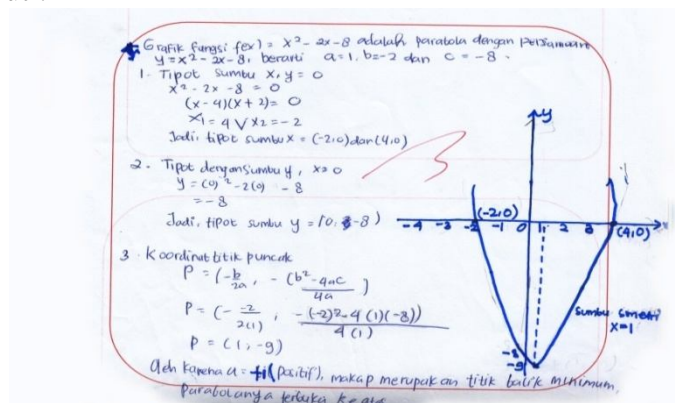 Grafik fungsi f(x) = x² - 2x - 8 adalah parabola dengan persamaan
y = x² - 2x - 8, berarti a = 1, b = -2 dan c = -8.
1. Tipot sumbu x, y = 0
x² - 2x - 8 = 0
(x - 4)(x + 2) = 0
x1 = 4 V x2 = -2
Jadi, tipot sumbu x = (-2,0) dan (4,0)
2. Tipot dengan sumbu y, x = 0
y = (0)² - 2(0) - 8
= -8
Jadi, tipot sumbu y = (0, -8)
3. Koordinat titik puncak
P = (-b/2a, -(b² - 4ac)/4a)
P = (- -2/2(1), -(-2)2 - 4(1)(-8))/4(1)
P = (1, -9)
Oleh karena a = +1 (positif), maka p merupakan titik balik minimum,
Parabolanya terbuka ke atas
y
(-2,0)
-4 -3 -2 -1 0 1 2 3 (4,0) x
sumbu simetri
x=1
-8
-9